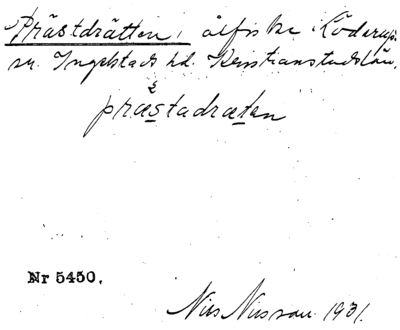 Prästdrätten, ålfiske i Löderups
sn. Ingelstads hd. Kristianstads län.
præstadræten
Nr 5450.
Nils Nilsson 1931.